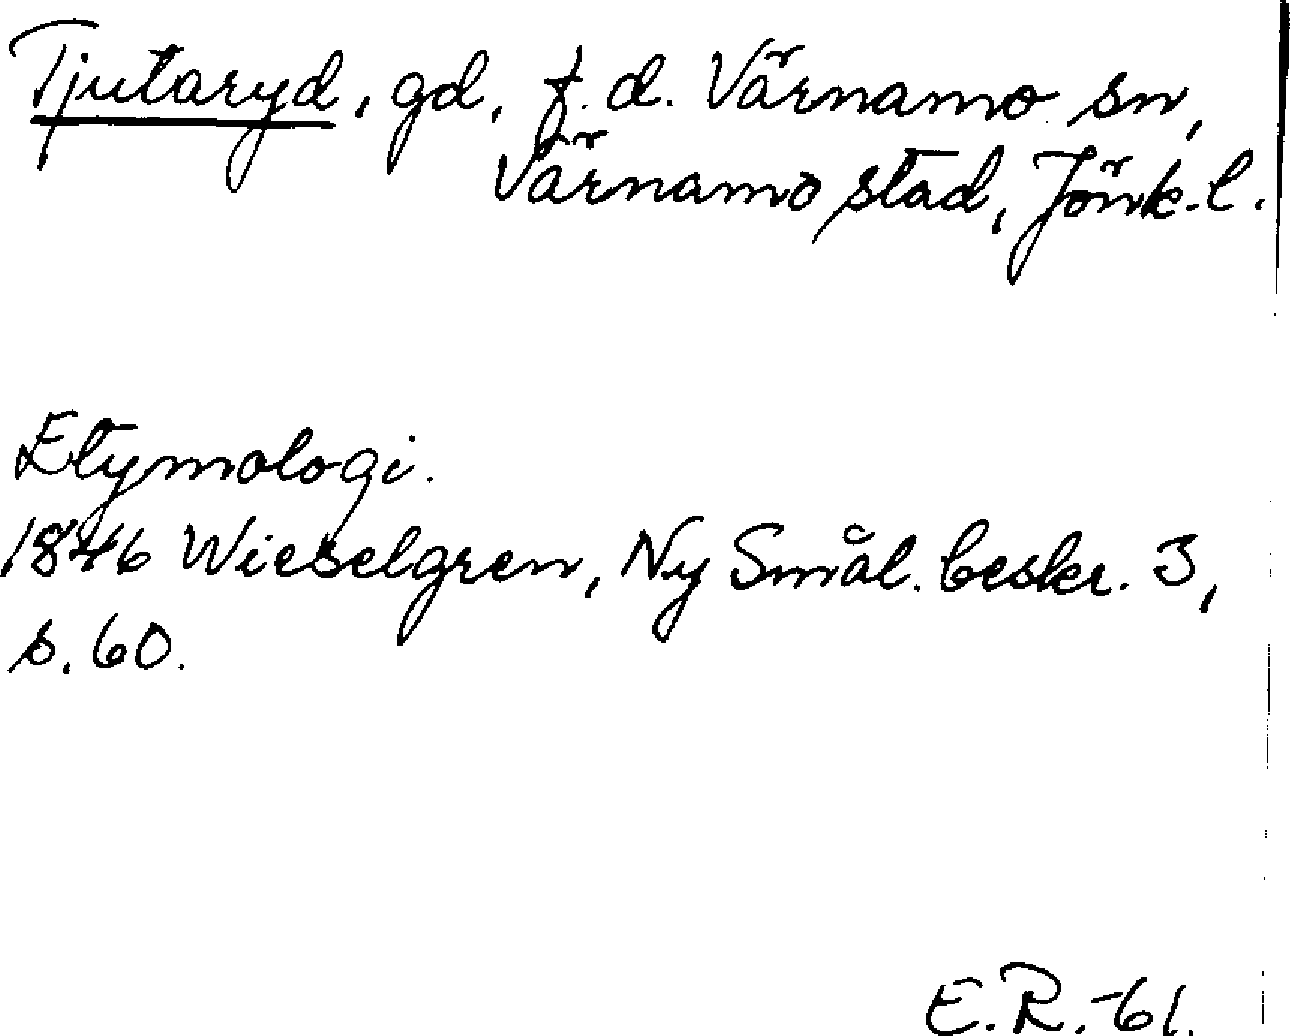 Tjutaryd, gd, f.d. Värnamo sn,
Värnamo stad, Jönk. l.
Etymologi.
1846 Wieselgren, Ny Smål. beskr. 3,
s. 60.
E.R.-61.